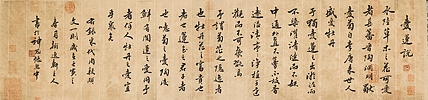 愛蓮說
水陸草木之花可愛
者甚蕃晉陶淵明獨
愛菊自李唐來世人
盛愛牡丹
予獨愛蓮之出淤泥而
不染濯清漣而不妖
中通外直不蔓不枝香
遠益清亭亭淨植可遠
觀而不可褻玩焉
予謂菊花之隱逸者
也牡丹花之富貴
者也蓮花之君子者
也噫菊之愛陶後
鮮有聞蓮之愛同予
者何人牡丹之愛宜
乎眾矣
右錄宋代周敦頤
文一則歲
春月
書於神